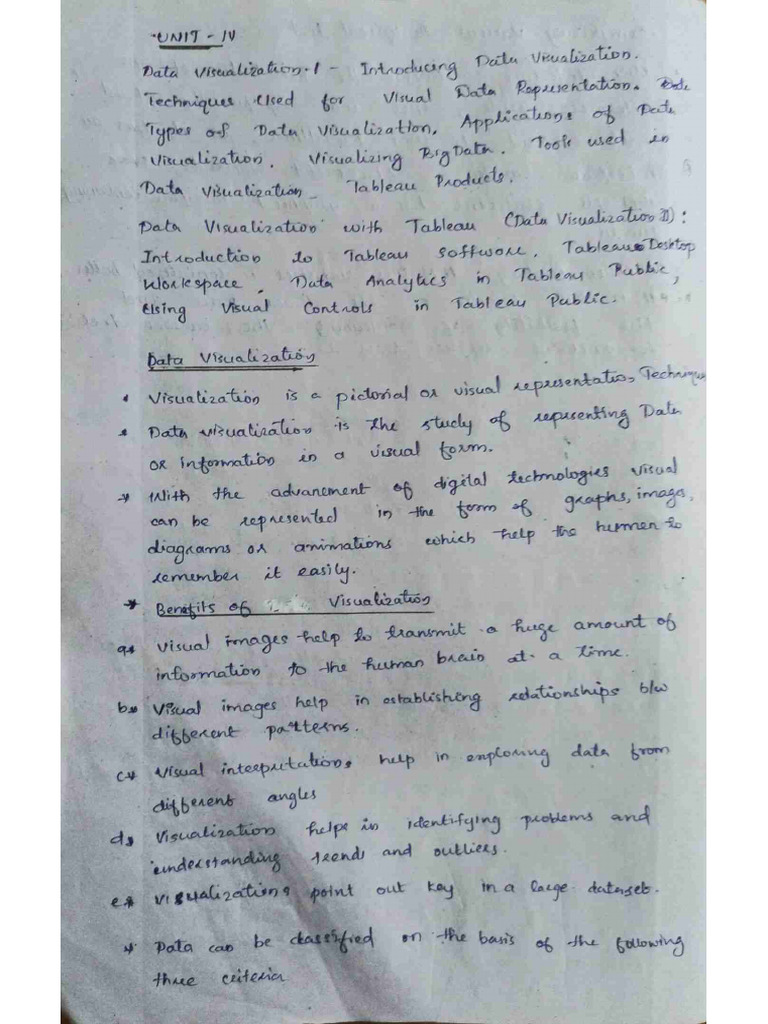 UNIT - IV
Data Visualization-1 - Introducing Data Visualization.
Techniques Used for Visual Data Representation.
Types of Data Visualization, Applications of Data
Visualization. Visualizing Big Data. Tools used in
Data Visualization - Tableau Products.
Data Visualization with Tableau (Data Visualization II):
Introduction to Tableau software. Tableau Desktop
Workspace. Data Analytics in Tableau Public,
Using Visual Controls in Tableau Public.
Data Visualization
• Visualization is a pictorial or visual representation, Technique
• Data visualization is the study of representing Data
or information in a visual form.
→ With the advancement of digital technologies visual
can be represented in the form of graphs, images,
diagrams or animations which help the human to
remember it easily.
* Benefits of Visualization
a) Visual images help to transmit a huge amount of
information to the human brain at a time.
b) Visual images help in establishing relationships b/w
different patterns.
c) Visual interpretations help in exploring data from
different angles
d) Visualization helps in identifying problems and
understanding trends and outliers.
e) Visualizations point out key in a large dataset.
→ Data can be classified on the basis of the following
three criteria